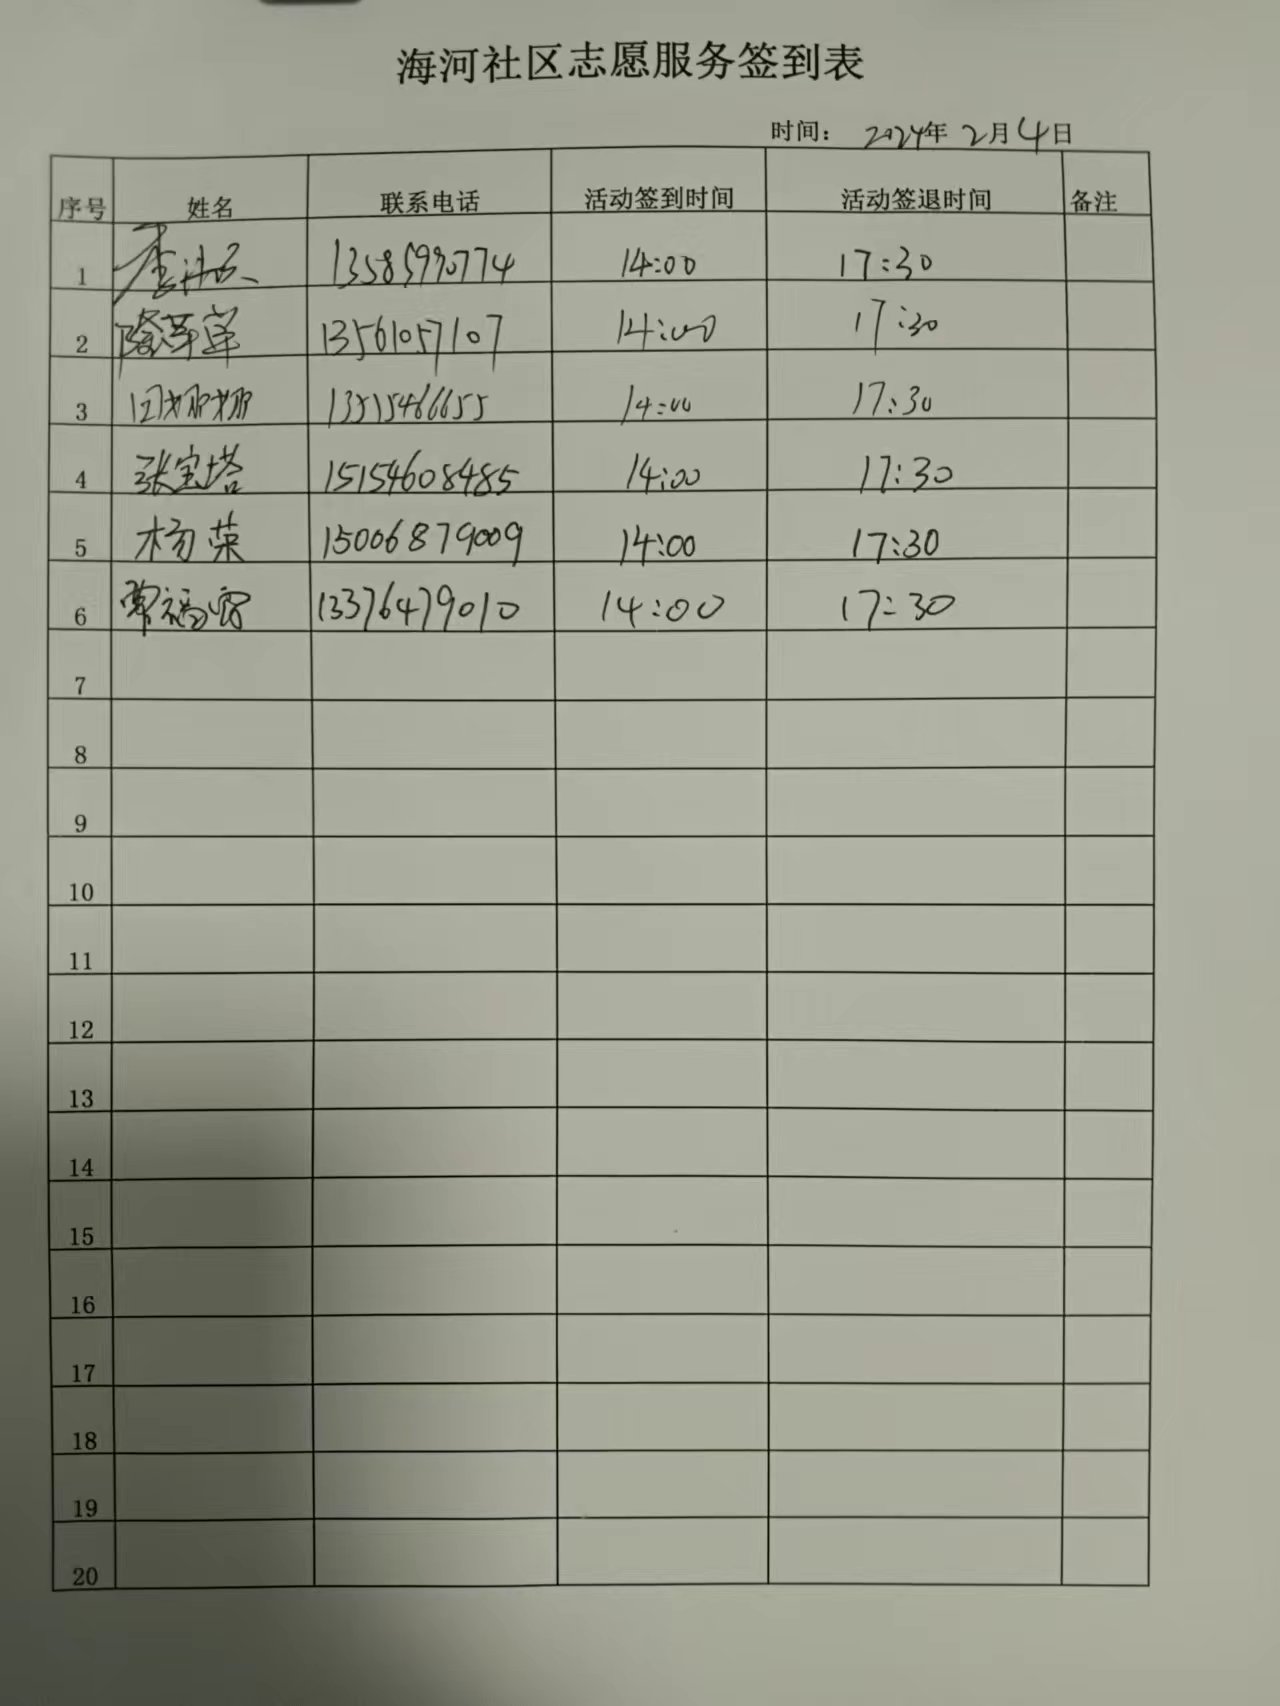 海河社区志愿服务签到表
时间： 2024年 2月4日
序号 姓名 联系电话 活动签到时间 活动签退时间 备注
1 李 13585990774 14:00 17:30
2 13561057107 14:00 17:30
3 田娜娜 13515466655 14:00 17:30
4 张宝塔 15154608485 14:00 17:30
5 杨荣 15006879009 14:00 17:30
6 常福霞 13376479010 14:00 17:30
7
8
9
10
11
12
13
14
15
16
17
18
19
20